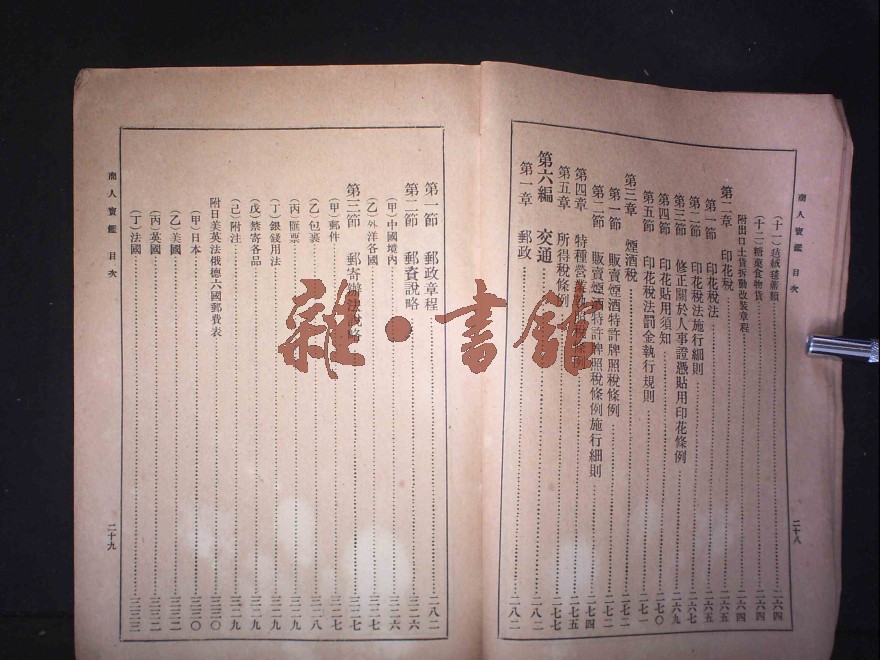 商人寶鑑 目次
二十八
(十一)毡絨毯蓆類 二六四
(十二)糖菓食物貨 二六四
附出口土貨拆動改裝章程 二六四
第二章 印花稅 二六五
第一節 印花稅法 二六五
第二節 印花稅法施行細則 二六七
第三節 修正關於人事證憑貼用印花條例 二六九
第四節 印花貼用須知 二七〇
第五節 印花稅法罰金執行規則 二七一
第三章 煙酒稅 二七二
第一節 販賣煙酒特許牌照稅條例 二七二
第二節 販賣煙酒特許牌照稅條例施行細則 二七四
第四章 特種營業執照稅條例 二七五
第五章 所得稅條例 二七七
第六編 交通 二八二
第一章 郵政 二八二
第一節 郵政章程 二八二
第二節 郵資說略 三二六
(甲)中國境內 三二六
(乙)外洋各國 三二七
第三節 郵寄辦法說略 三二七
(甲)郵件 三二七
(乙)包裹 三二八
(丙)匯票 三二九
(丁)銀錢用法 三二九
(戊)禁寄各品 三二九
(己)附注 三二九
附日美英法俄德六國郵費表 三三〇
(甲)日本 三三〇
(乙)美國 三三二
(丙)英國 三三二
(丁)法國 三三三
商人寶鑑 目次
二十九
雜·書館